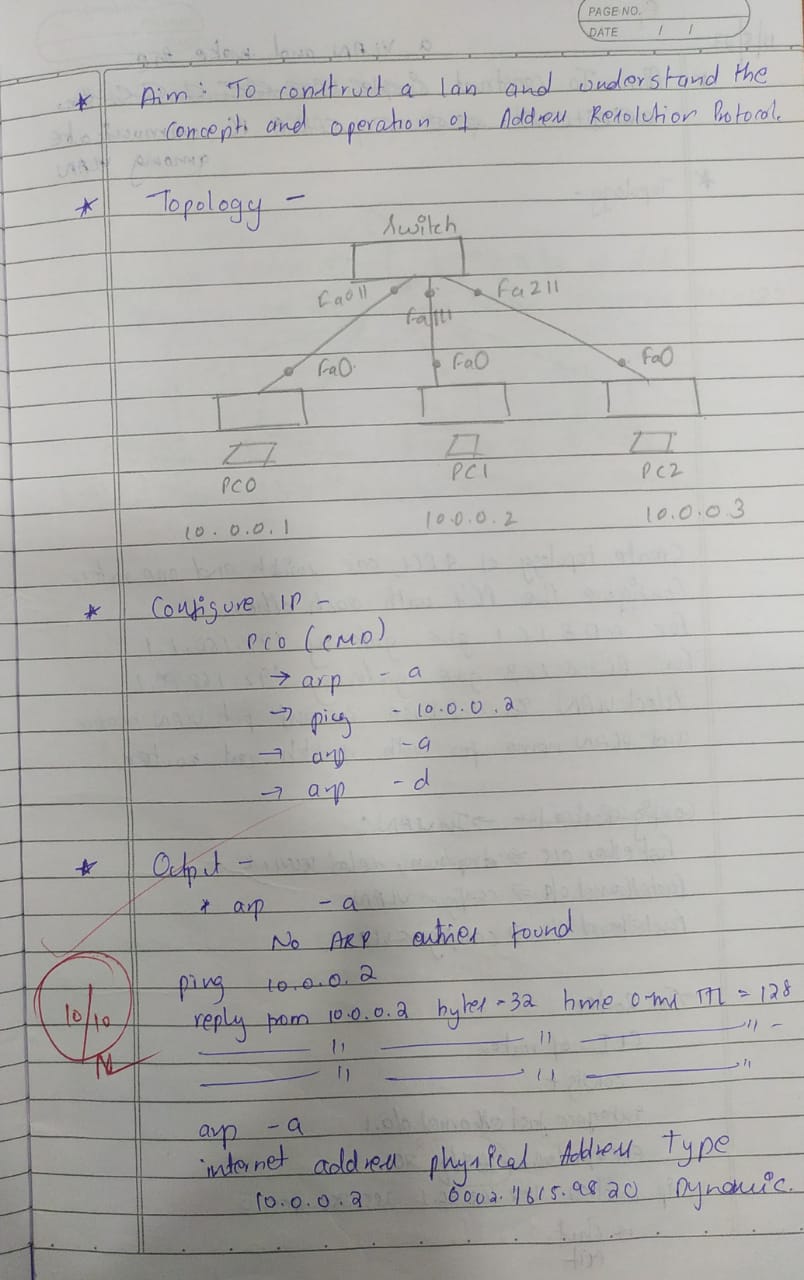 PAGE NO.
DATE / /
* Aim: To construct a lan and understand the
concepts and operation of Address Resolution Protocol.
* Topology -
Switch
Fa0/1 Fa1/1 Fa2/1
Fa0 Fa0 Fa0
PC0 PC1 PC2
10.0.0.1 10.0.0.2 10.0.0.3
* Configure IP -
PC0 (CMD)
→ arp -a
→ ping - 10.0.0.2
→ arp -a
→ arp -d
* Output -
* arp -a
No ARP entries found
ping 10.0.0.2
10/10
reply from 10.0.0.2 bytes = 32 time 0-ms TTL = 128
—— " —— " —— " -
—— " —— " —— "
arp -a
internet address physical Address Type
10.0.0.2 Dynamic.